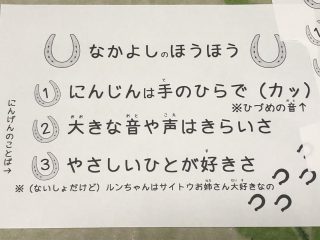 なかよしのほうほう
① にんじんは手のひらで（カッ）
※ひづめの音↑
② 大きな音や声はきらいさ
③ やさしいひとが好きさ
※（ないしょだけど）ルンちゃんはサイトウお姉さん大好きなの
にんげんのことば→